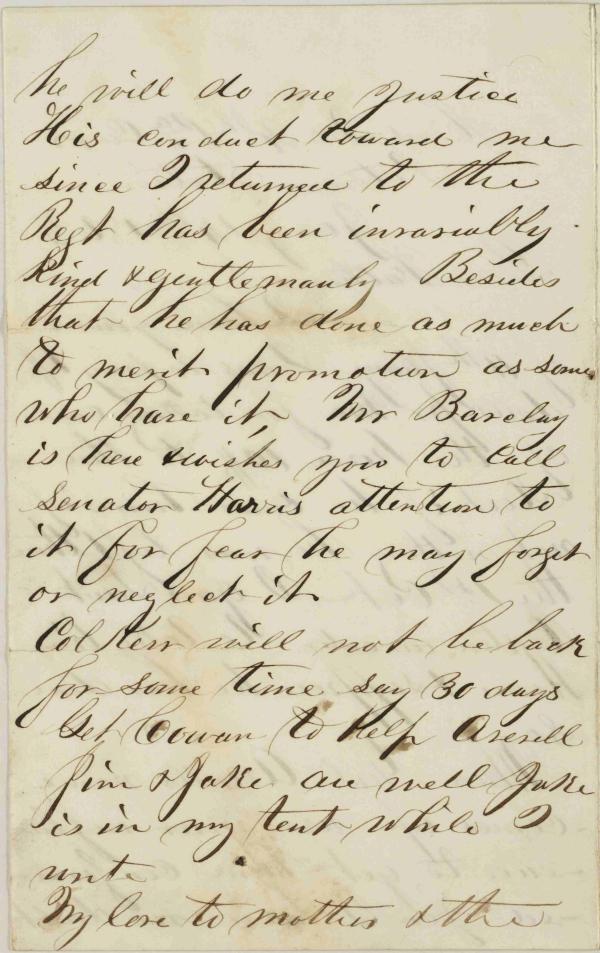 he will do me justice
His conduct toward me
since I returned to the
Regt has been invariably
kind & gentlemanly Besides
that he has done as much
to merit promotion as some
who have it, Mr Barclay
is here & wishes you to call
Senator Harris attention to
it for fear he may forget
or neglect it
Col Kerr will not be back
for some time say 30 days
Get Cowan to help Averell
Jim & Jake are well Jake
is in my tent while I
write
My love to mother & the